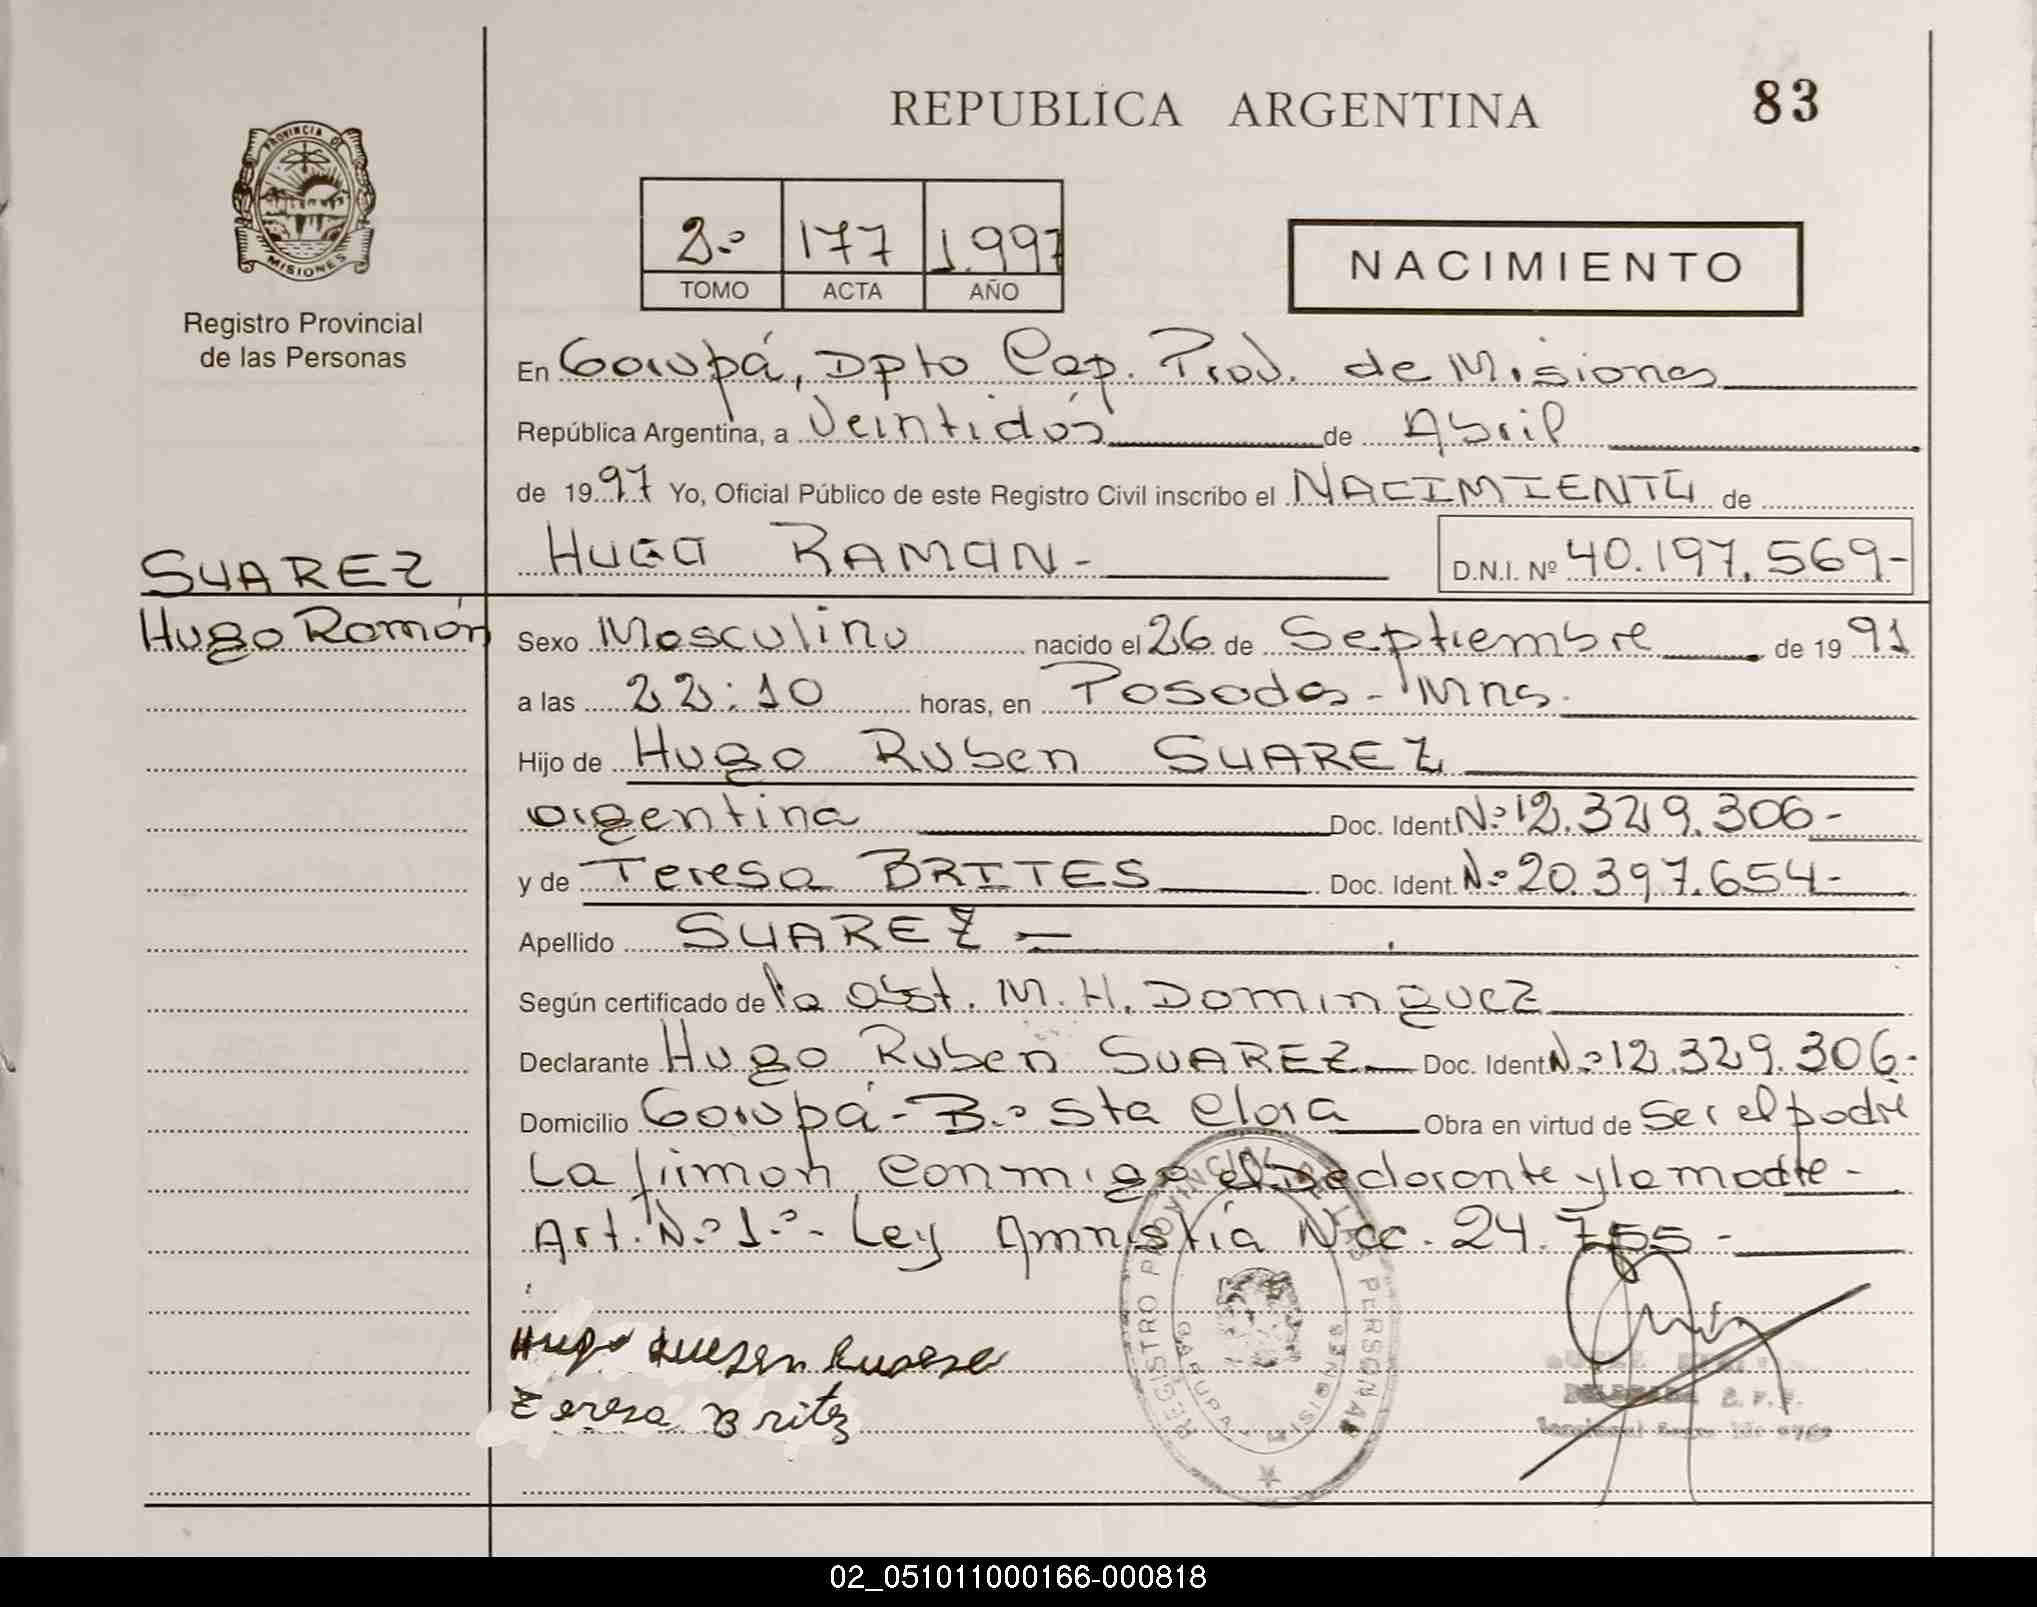 REPUBLICA ARGENTINA
83
PROVINCIA DE
MISIONES
Registro Provincial
de las Personas
2.º 177 1.997
TOMO ACTA AÑO
NACIMIENTO
En Garupá, Dpto Cap. Prov. de Misiones
República Argentina, a Veintidós de Abril
de 1997 Yo, Oficial Público de este Registro Civil inscribo el NACIMIENTO de
HUGO RAMON-
D.N.I. Nº 40.197.569-
SUAREZ
Hugo Ramón
Sexo Masculino nacido el 26 de Septiembre de 19 91
a las 22:10 horas, en Posadas - Mns.
Hijo de Hugo Ruben SUAREZ
argentina Doc. Ident. N.º 12.329.306-
y de Teresa BRITES Doc. Ident. N.º 20.397.654-
Apellido SUAREZ -
Según certificado de la Obst. M. H. Dominguez
Declarante Hugo Ruben SUAREZ Doc. Ident. N.º 12.329.306-
Domicilio Garupá - B.º Sta Clara Obra en virtud de Ser el padre
La firman conmigo el Declarante y la madre -
Art. N.º 1.º - Ley Amnistía Nac. 24.755 -
Hugo Ruben Suarez
Teresa Britez
REGISTRO PROVINCIAL DE LAS PERSONAS
GARUPA - MISIONES
02_051011000166-000818